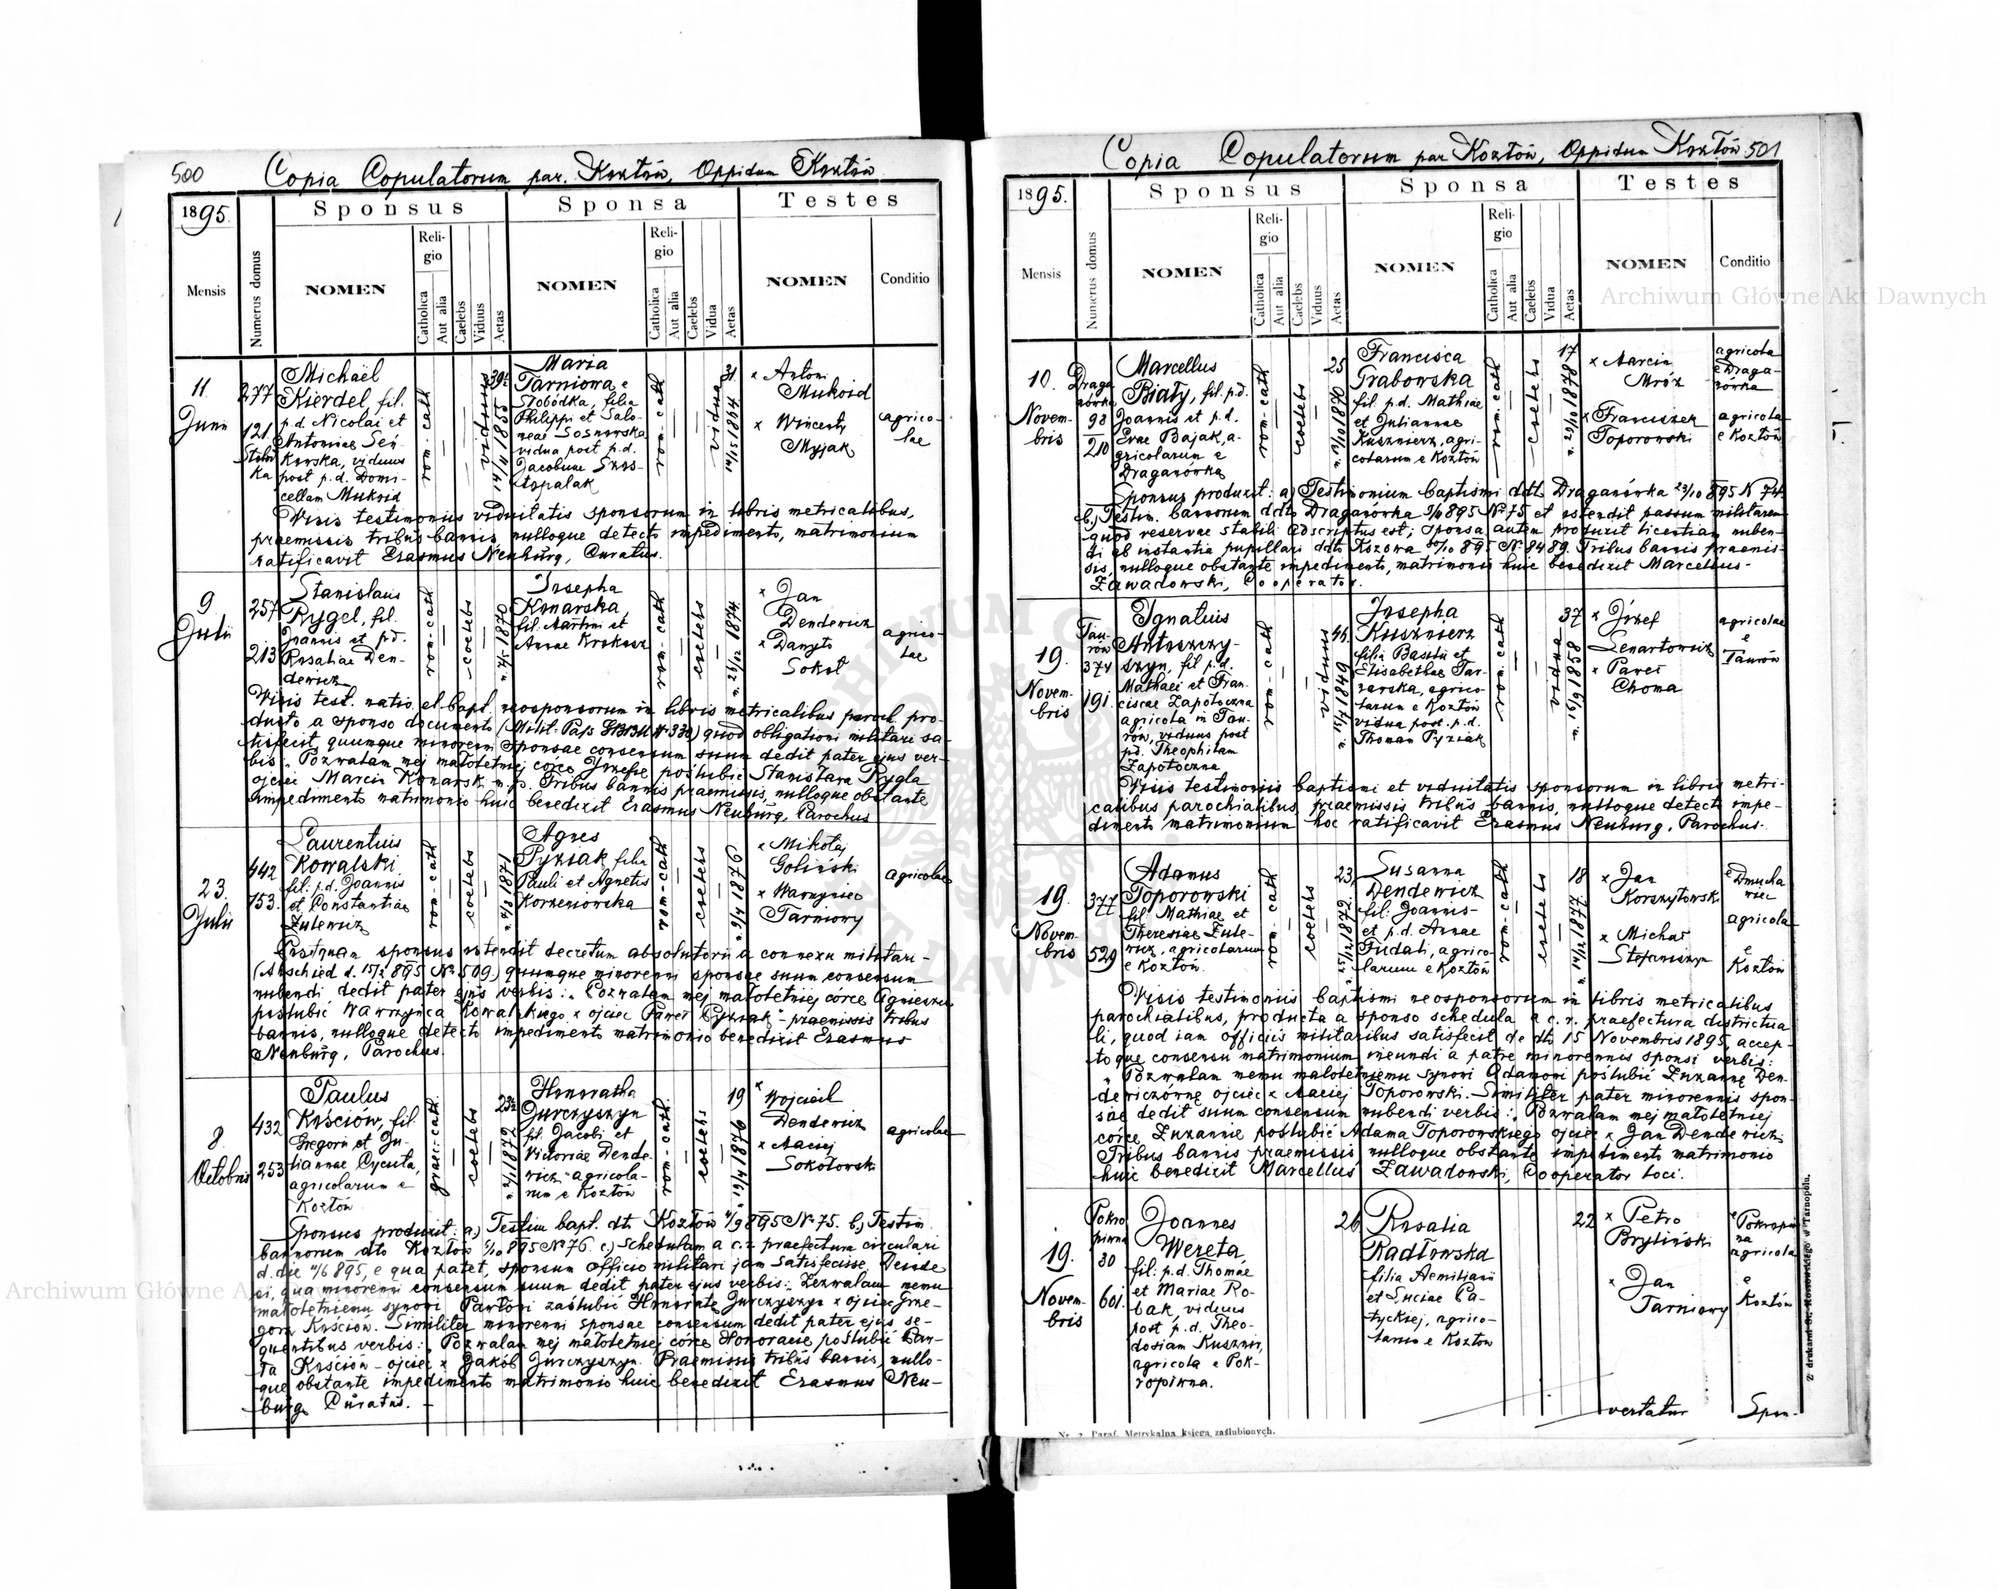 500 Copia Copulatorum par. Kozłów, Oppidum Kozłów
1895.
Sponsus
Sponsa
Testes
Mensis
Numerus domus
NOMEN
Religio
Catholica
Aut alia
Caelebs
Viduus
Aetas
NOMEN
Religio
Catholica
Aut alia
Caelebs
Vidua
Aetas
NOMEN
Conditio
11
Junii
277
121
Michaël
Kierdel, fil.
p.d. Nicolai et
Antoniae
viduus
post p.d. Domi-
cellam Mukoid
rom-cath
viduus
Maria
Tarniowa e
Słobódka, filia
Philippi et Salo-
meae Sosnowska
vidua post p.d.
Jacobum
rom-cath
vidua
x Antoni
Mukoid
x Wincenty
Myjak
agrico-
lae
Visis testimoniis viduitatis sponsorum in libris metricalibus,
praemissis tribus bannis, nulloque detecto impedimento, matrimonium
ratificavit Erasmus Neuburg, Curatus.
9
Julii
257
213
Stanislaus
Rygel, fil.
Joannis et p.d.
Rosaliae Den-
dewicz
rom-cath
coelebs
Josepha
Konarska,
fil. Martini et
Annae Krokosz
rom-cath
coelebs
x Jan
Dendewicz
x Danyło
Sokół
agrico-
lae
Visis test. natio. et bapt. neosponsorum in libris metricalibus paroch. pro-
ducto a sponso documento quod obligationi militari sa-
tisfecit, quumque minorenni sponsae consensum suum dedit pater ejus ver-
bis: „Pozwalam mej małoletniej córce Józefie poślubić Stanisława Rygla
ojciec Marcin Konarski m.p. Tribus bannis praemissis, nulloque obstante
impedimento matrimonio huic benedixit Erasmus Neuburg, Parochus
23.
Julii
442
153.
Laurentius
Kowalski
fil. p.d. Joannis
et Constantiae
Zulewicz
rom-cath
coelebs
Agnes
Pyziak filia
Pauli et Agnetis
Korzeniowska
rom-cath
coelebs
x Mikołaj
Goliński
x Wawrzyniec
Tarniowy
agricolae
Postquam sponsus ostendit decretum absolutorii a connexu militari-
(Abschied d. 15/2 895 No 509.) quumque minorenni sponsae suum consensum
nubendi dedit pater ejus verbis: „Pozwalam mej małoletniej córce Agnieszce
poślubić Wawrzyńca Kowalskiego x ojciec Paweł Pyziak" - praemissis tribus
bannis, nulloque detecto impedimento matrimonio benedixit Erasmus
Neuburg, Parochus.
8.
Octobris
432
253
Paulus
Kościów, fil.
Gregorii et Ju-
liannae Cycuta,
agricolarum e
Kozłów
graec-cath.
coelebs
Honoratha
Jurczyszyn
fil. Jacobi et
Victoriae Dende-
wicz agricola-
rum e Kozłów
rom-cath.
coelebs
19
x Wojciech
Dendewicz
x Maciej
Sokołowski
agricolae
Sponsus produxit: a.) Testim. bapt. dto Kozłów 4/9 895 No 75. b.) Testim.
bannorum dto Kozłów 895 No 76. c.) Schedulam a c. r. praefectura circulari
d. die 4/6 895, e qua patet, sponsum officio militari jam satisfecisse. Deinde
ei, qua minorenni consensum suum dedit pater ejus verbis: Zezwalam memu
małoletniemu synowi Pawłowi zaślubić Honoratę Jurczyszyn x ojciec Grze-
gorz Kościów. Similiter minorenni sponsae consensum dedit pater ejus se-
quentibus verbis: „Pozwalam mej małoletniej córce Honoracie, poślubić Paw-
ła Kościów - ojciec x Jakób Jurczyszyn. Praemissis tribus bannis, nullo-
que obstante impedimento matrimonio huic benedixit Erasmus Neu-
burg Curatus. -
Copia Copulatorum par Kozłów, Oppidum Kozłów 501
1895.
Sponsus
Sponsa
Testes
Mensis
Numerus domus
NOMEN
Religio
Catholica
Aut alia
Caelebs
Viduus
Aetas
NOMEN
Religio
Catholica
Aut alia
Caelebs
Vidua
Aetas
NOMEN
Conditio
10.
Novem-
bris
Draga
nówka
98
210
Marcellus
Biały, fil. p.d.
Joannis et p.d.
Evae Bajak, a-
gricolarum e
Draganówka
rom-cath
coelebs
25
Francisca
Grabowska
fil. p.d. Mathiae
et Juliannae
Kusznierz, agri-
colarum e Kozłów
rom-cath
coelebs
17
x Marcin
Mróz
x Franciszek
Toporowski
agricola
e Draga-
nówka
agricola
e Kozłów
Sponsus produxit: a) Testimonium baptismi ddto Draganówka 23/10 895 N 74.
b.) Testim. bannorum ddto Draganówka 895 No 75 et ostendit passum militarem
quod reservae stabili adscriptus est; sponsa autem produxit licentiam nuben-
di ab instantia pupillari ddto Kozowa 895 No 8489. Tribus bannis praemis-
sis, nulloque obstante impedimento, matrimonio huic benedixit Marcellus
Zawadowski, Cooperator.
19.
Novem-
bris
Tau-
rów
374
191.
Ignatius
Antoszczy-
szyn, fil p.d.
Mathaei et Fran-
ciscae Zapotoczna
agricola in Tau-
rów, viduus post
p.d. Theophilam
Zapotoczna
rom-cath
viduus
Josepha
Kusznierz
filia Basilii et
Elisabethae
agrico-
larum e Kozłów
vidua post. p.d.
Thomam Pyziak
rom-cath
vidua
37
x Józef
Lenartowicz
x Paweł
Choma
agricolae
e
Taurów
Visis testimoniis baptismi et viduitatis sponsorum in libris metri-
calibus parochialibus, praemissis tribus bannis, nulloque detecto impe-
dimento matrimonium hoc ratificavit Erasmus Neuburg, Parochus.
19.
Novem-
bris
377
529
Adamus
Toporowski
fil. Mathiae et
Theresiae Zule-
wicz, agricolarum
e Kozłów.
rom-cath
coelebs
23
Susanna
Dendewicz
fil: Joannis
et p.d. Annae
Fudali, agrico-
larum e Kozłów
rom-cath
coelebs
18
x Jan
Korszyłowski
x Michał
Stefaniszyn
e Dmucha
wiec
agricola
e
Kozłów
Visis testimoniis baptismi neosponsorum in libris metricalibus
parochialibus, producta a sponso schedula a c. r. praefectura districtua
li, quod iam officiis militaribus satisfecit de dto 15 Novembris 1895, accep-
toque consensu matrimonium ineundi a patre minorennis sponsi verbis:
„Pozwalam memu małoletniemu synowi Adamowi poślubić Zuzannę Den-
dewiczównę ojciec x Maciej Toporowski. Similiter pater minorennis spon-
sae dedit suum consensum nubendi verbis: „Pozwalam mej małoletniej
córce Zuzannie poślubić Adama Toporowskiego ojciec x Jan Dendewicz
Tribus bannis praemissis nulloque obstante impedimento matrimonio
huic benedixit Marcellus Zawadowski, Cooperator loci.
19.
Novem-
bris
Pokro
piwna
30
601.
Joannes
Wereta
fil: p.d. Thomae
et Mariae Ro-
bak, viduus
post p.d. Theo-
dosiam Kusznir,
agricola e Pok-
ropiwna.
26
Rosalia
Radłowska
filia Aemiliani
et Luciae Ga-
łyckiej, agrico-
larum e Kozłów
22
x Petro
Bryliński
x Jan
Tarniowy
e Pokropiw
na
agricola
e
Kozłów
vertatur
Spon-
Nr. 2. Paraf. Metrykalna księga zaślubionych.
Z drukarni St. Kossowskiego w Tarnopolu.
Archiwum Główne Akt Dawnych
Archiwum Główne Akt Dawnych